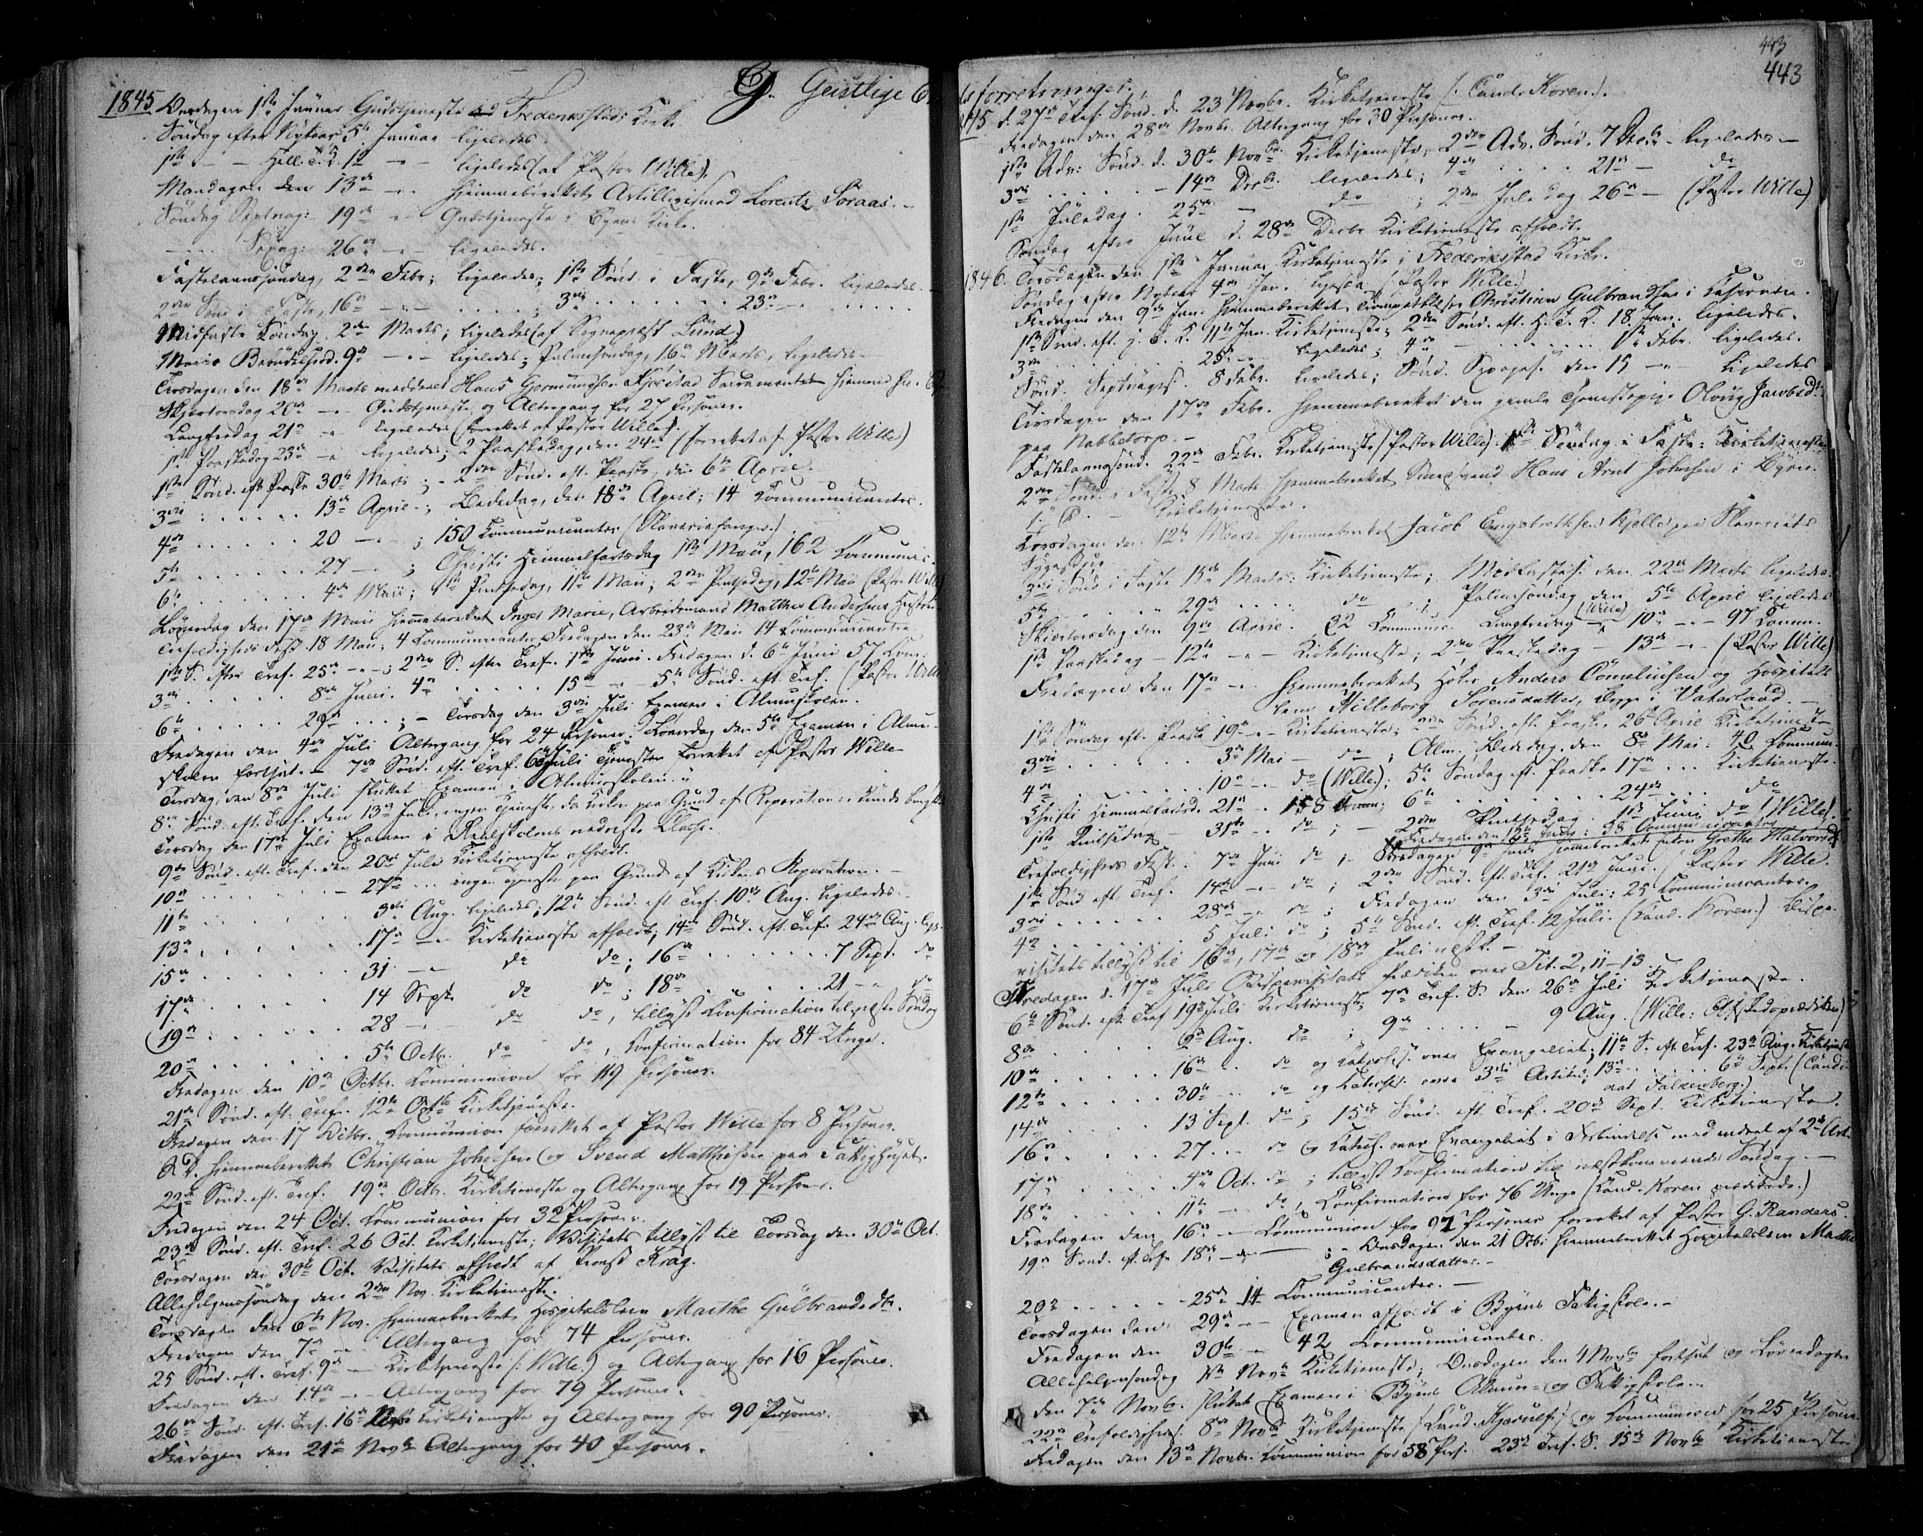 G. Geistlige
1845 Onsdagen 1ste Januar Gudstjeneste ved Frederiksstads Kirke
Søndag efter Nytaar, 5te Januar ligeledes.
1ste — Hell. T. d. 12 — ligeledes (af Pastor Wille).
Mandagen den 13de — Hjemmeberettet Artillerimand Lorentz Soraas. —
Søndag Septuag: 19de — Gudstjeneste i Byens Kirke.
— Sexag: 26de — ligeledes.
Fastelavnssøndag, 2den Febr; ligeledes; 1ste Sønd. i Faste, 9de Febr. ligeledes. —
2den Sønd. i Faste, 16de — ; 3die 23de —
Midfaste Søndag, 2den Marts; ligeledes (af Sognepræst Lund.)
Mariæ Bebudelsesd. 9de — ligeledes; Palmesøndag, 16de Marts, ligeledes.
Tirsdagen den 18de Marts meddeelt Hans Gormundsen Sacramentet hjemme
Skjertorsdag 20de — Gudstjeneste og Altergang for 27 Personer.
Langfredag 21de — ligeledes (forrettet af Pastor Wille).
1ste Paaskedag 23de — ligeledes; 2 Paaskedag, den 24de (forrettet af Pastor Wille)
1ste Sønd. eft. Paaske 30te Marts; — 2den Sønd. eft. Paaske, den 6te April.
3die 13de April —; Bededag, den 18de April; 14 Communicanter.
4de 20 — ; 150 Kommunicanter (Slaveriefanger.)
5te 27 — ; Christi Himmelfartsdag 1ste Maii, 162 Communic.
6te 4de Maii; 1ste Pintsedag, 11te Maii; 2den Pintsedag, 12te Mai (Pastor Wille)
Løverdag den 17de Maii hjemmeberettet Inger Marie, Arbeidsmand Matthis Andersens Hustru
Trefoldigheds Fest 18 Mai; 4 Kommunicanter. Fredagen den 23de Mai 14 Kommunicanter
1ste S. efter Tref. 25de —; 2den S. efter Tref. 1ste Juni. Fredagen d. 6te Juni 57 Kom:
3die 8de Juni. 4de 15de — 5te Sønd. eft. Tref. (Pastor Wille
6te 29de ; — Torsdag den 3die Juli Examen i Almueskolen.
Fredagen den 4de Juli Altergang for 24 Personer. Løverdag den 5te Examen i Almue-
skolen fortsat. — 7de Sønd. eft. Tref. 6te Juli Tjenesten forrettet af Pastor Wille
Tirsdag, den 8de Juli sluttet Examen i Almueskolen.
8de Sønd. eft. Tref. den 13de Juli, ingen Tjeneste da Kirken paa Grund af Reparation ei kunde benyttes
Torsdag den 17de Juli Examen i Realskolens nederste Classe.
9de Sønd. eft. Tref. den 20de Juli Kirketjeneste afholdt.
10de — 27de ingen Tjeneste paa Grund af Kirkens Reparation. —
11te 3die Aug. ligeledes; 12te Sønd. eft. Tref. 10de Aug. ligeledes.
13de 17de — Kirketjeneste afholdt; 14de Sønd. eft. Tref. 24de Aug.
15de 31 — do do; 16de 7 Sept. do
17de 14 Sept. do do; 18de 21 — do
19de 28 — do do, tillyst Konfirmation til næste Søndag
20de 5te Octbr. do do, Konfirmation for 84 Unge.
Fredagen den 10de Octbr. Kommunion for 119 Personer.
21de Sønd. eft. Tref. 12te Octb. Kirketjeneste.
Fredagen den 17 Octbr. Kommunion forrettet af Pastor Wille for 8 Personer.
S. D. Hjemmeberettet Christian Johnsen og Svend Matthisen paa Fattighuset.
22de Sønd. eft. Tref. 19de Octbr. Kirketjeneste og Altergang for 19 Personer.
Fredagen den 24 Oct. Communion for 32 Personer.
23de Sønd. eft. Tref. 26 Oct. Kirketjeneste; Visitats tillyst til Torsdag den 30te Oct.
Torsdagen den 30te Oct. Visitats afholdt af Provst Krag.
Allehelgenssøndag den 2den Nov. Kirketjeneste.
Torsdagen den 6te Nov. Hjemmeberettet Hospitalslem Marthe Gulbrandsdtr.
Fredagen den 7de — Altergang for 74 Personer.
25 Sønd. eft. Tref. 9de — Kirketjeneste (: Wille) og Altergang for 16 Personer.
Fredagen den 14de — Altergang for 79 Personer.
26de Sønd. eft. Tref. 16de Novb. Kirketjeneste og Altergang for 90 Personer.
Fredagen den 21de Novb. Altergang for 40 Personer.
443
443
forretninger.
1845 d. 27de Tref. Sønd. d. 23 Novbr. Kirketjeneste (: Cand. Koren).
Fredagen den 28de Novbr. Altergang for 30 Personer.
1ste Adv: Sønd. d. 30te Novbr. Kirketjeneste; 2den Adv. Sønd. 7 Decbr. ligeledes —
3die — 14de Decbr. ligeledes; 4de 21de — do
1ste Juledag. 25de — do ; 2den Juledag 26de — (Pastor Wille)
Søndag efter Juul d. 28de Decbr Kirketjeneste afholdt.
1846. Torsdagen den 1ste Januar Kirketjeneste i Frederiksstad Kirke.
Søndag efter Nytaar 4de Jan. ligeled. (Pastor Wille)
Fredagen den 9de Jan. Hjemmeberettet Christian Gulbrandsen i
1ste Sønd. eft. H. T. K. 11te Jan. Kirketjeneste; 2den Sønd. eft. H. T. K. 18 Jan. ligeledes.
3die 25de — ligeledes; 4de 1ste Febr. ligeledes.
Sønd. Septuages. 8 Febr. ligeledes; Sønd. Sexages. den 15 — ligeledes
Tirsdagen den 17de Febr. Hjemmeberettet den gamle Tjenestepige Oloug Jacobsdtr.
paa Nabbetorp. —
Fastelavnssønd. 22de Febr. Kirketjeneste (Pastor Wille); 1ste Søndag i Faste: Kirketjeneste
2den Sønd. i Faste 8 Marts Hjemmeberettet Hans Arnt Johnsen i Byen.
Kirketjeneste.
Torsdagen den 12te Marts Hjemmeberettet Jacob paa Slaveriets
Sygehuus.
3die Sønd. i Faste 15de Marts: Kirketjeneste; Midfastes. den 22de Marts ligeledes.
5te 29de do ; Palmesøndag den 5te April ligeledes
Skjertorsdag den 9de April. 32 Kommunic. Langfredag (Wille) 10de — 97 Komm.
1ste Paaskedag — 12te — Kirketjeneste; 2den Paaskedag — 13de — (Pastor Wille)
Fredagen den 17de — Hjemmeberettet Høker Anders Corneliusen og Hospitals
lem Willeborg Sørensdatter, begge i Vaterland. —
1ste Søndag eft. Paaske 19de — Kirketjeneste; 2den Sønd. eft. Paaske 26de April Kirketjeneste
3die 3die Mai — do ; Alm. Bededag, den 8de Mai: 40 Kommun.
4de 10de — do (Wille); 5te Søndag eft. Paaske 17de Kirketjeneste.
Christi Himmelfartsd. 21de . 158 Komm; 6te 24de do
1ste Pintsedag — 31te do ; — 2den Pintsedag . 1ste Juni do (Wille).
Fredagen den 12te Juni: 38 Communicanter.
Trefoldigheds Fest. 7de Juni do ; Tirsdagen 9de Juni Hjemmeberettet Grethe Halvorsd.
1ste Sønd. eft. Tref. 14de — do ; 2den Sønd. eft. Tref. 21de Juni. (Pastor Wille.
3die 28de — do ; Fredagen den 3die Juli: 25 Communicanter.
4de 5 Juli do ; 5te Sønd. eft. Tref. 12 Juli. (Cand. Koren.) Bispe-
visitats tillyst til 16de, 17de og 18de Juli næstk. —
Fredagen d. 17de Juli Bispevisitats Prædiken over Tit. 2, 11-13.
6te Sønd. eft. Tref 19de Juli Kirketjeneste; 7de Tref. S. den 26de Juli Kirketjeneste.
8de 2den Aug. do ; 9de — 9 Aug. (Wille: Afskedsprædiken)
10de 16de — do og Katechis. over Evangeliet; 11te S. eft. Tref. 23de Aug. Kirketjeneste
12te 30te — do og Katechis. over 3die Artikel; 13de 6te Sept. (Candi-
dat Falkenberg.)
14de 13 Sept. do ; 15de Sønd. eft. Tref. 20de Sept. Kirketjeneste.
16de 27 do og Katech. over Evangeliet i Forbindelse med endeel af 2den Art.
17de 4de Oct. do ; tillyst Konfirmation til næstkommende Søndag. —
18de 11te — do , Confirmation for 76 Unge (Cand. Koren prædikede.)
Fredagen den 16de — Communion for 97 Personer forrettet af Pastor G. Randers.
19de Sønd. eft. Tref 18de — ; — Onsdagen den 21 Octbr Hjemmeberettet Hospitalslem Marthe
Gulbrandsdatter. —
20de 25de 14 Communicanter. —
Torsdagen den 29de — Examen afholdt i Byens Fattigskole. —
Fredagen den 30te — 42 Communicanter.
Allehelgensøndag 1ste Novb. Kirketjeneste; Onsdagen den 4 Novb. fortsat og Løverdagen
den 7de Novb. sluttet Examen i Byens Almue- og Fattigskole. —
22de Trefoldigheds. 8de Novb. Kirketjeneste (Cand. Kjerulf) og Kommunion for 25 Personer.
Fredagen den 13de Novbr. Communion for 58 Pers. 23de Tref. S. 15de Novb. Kirketjeneste